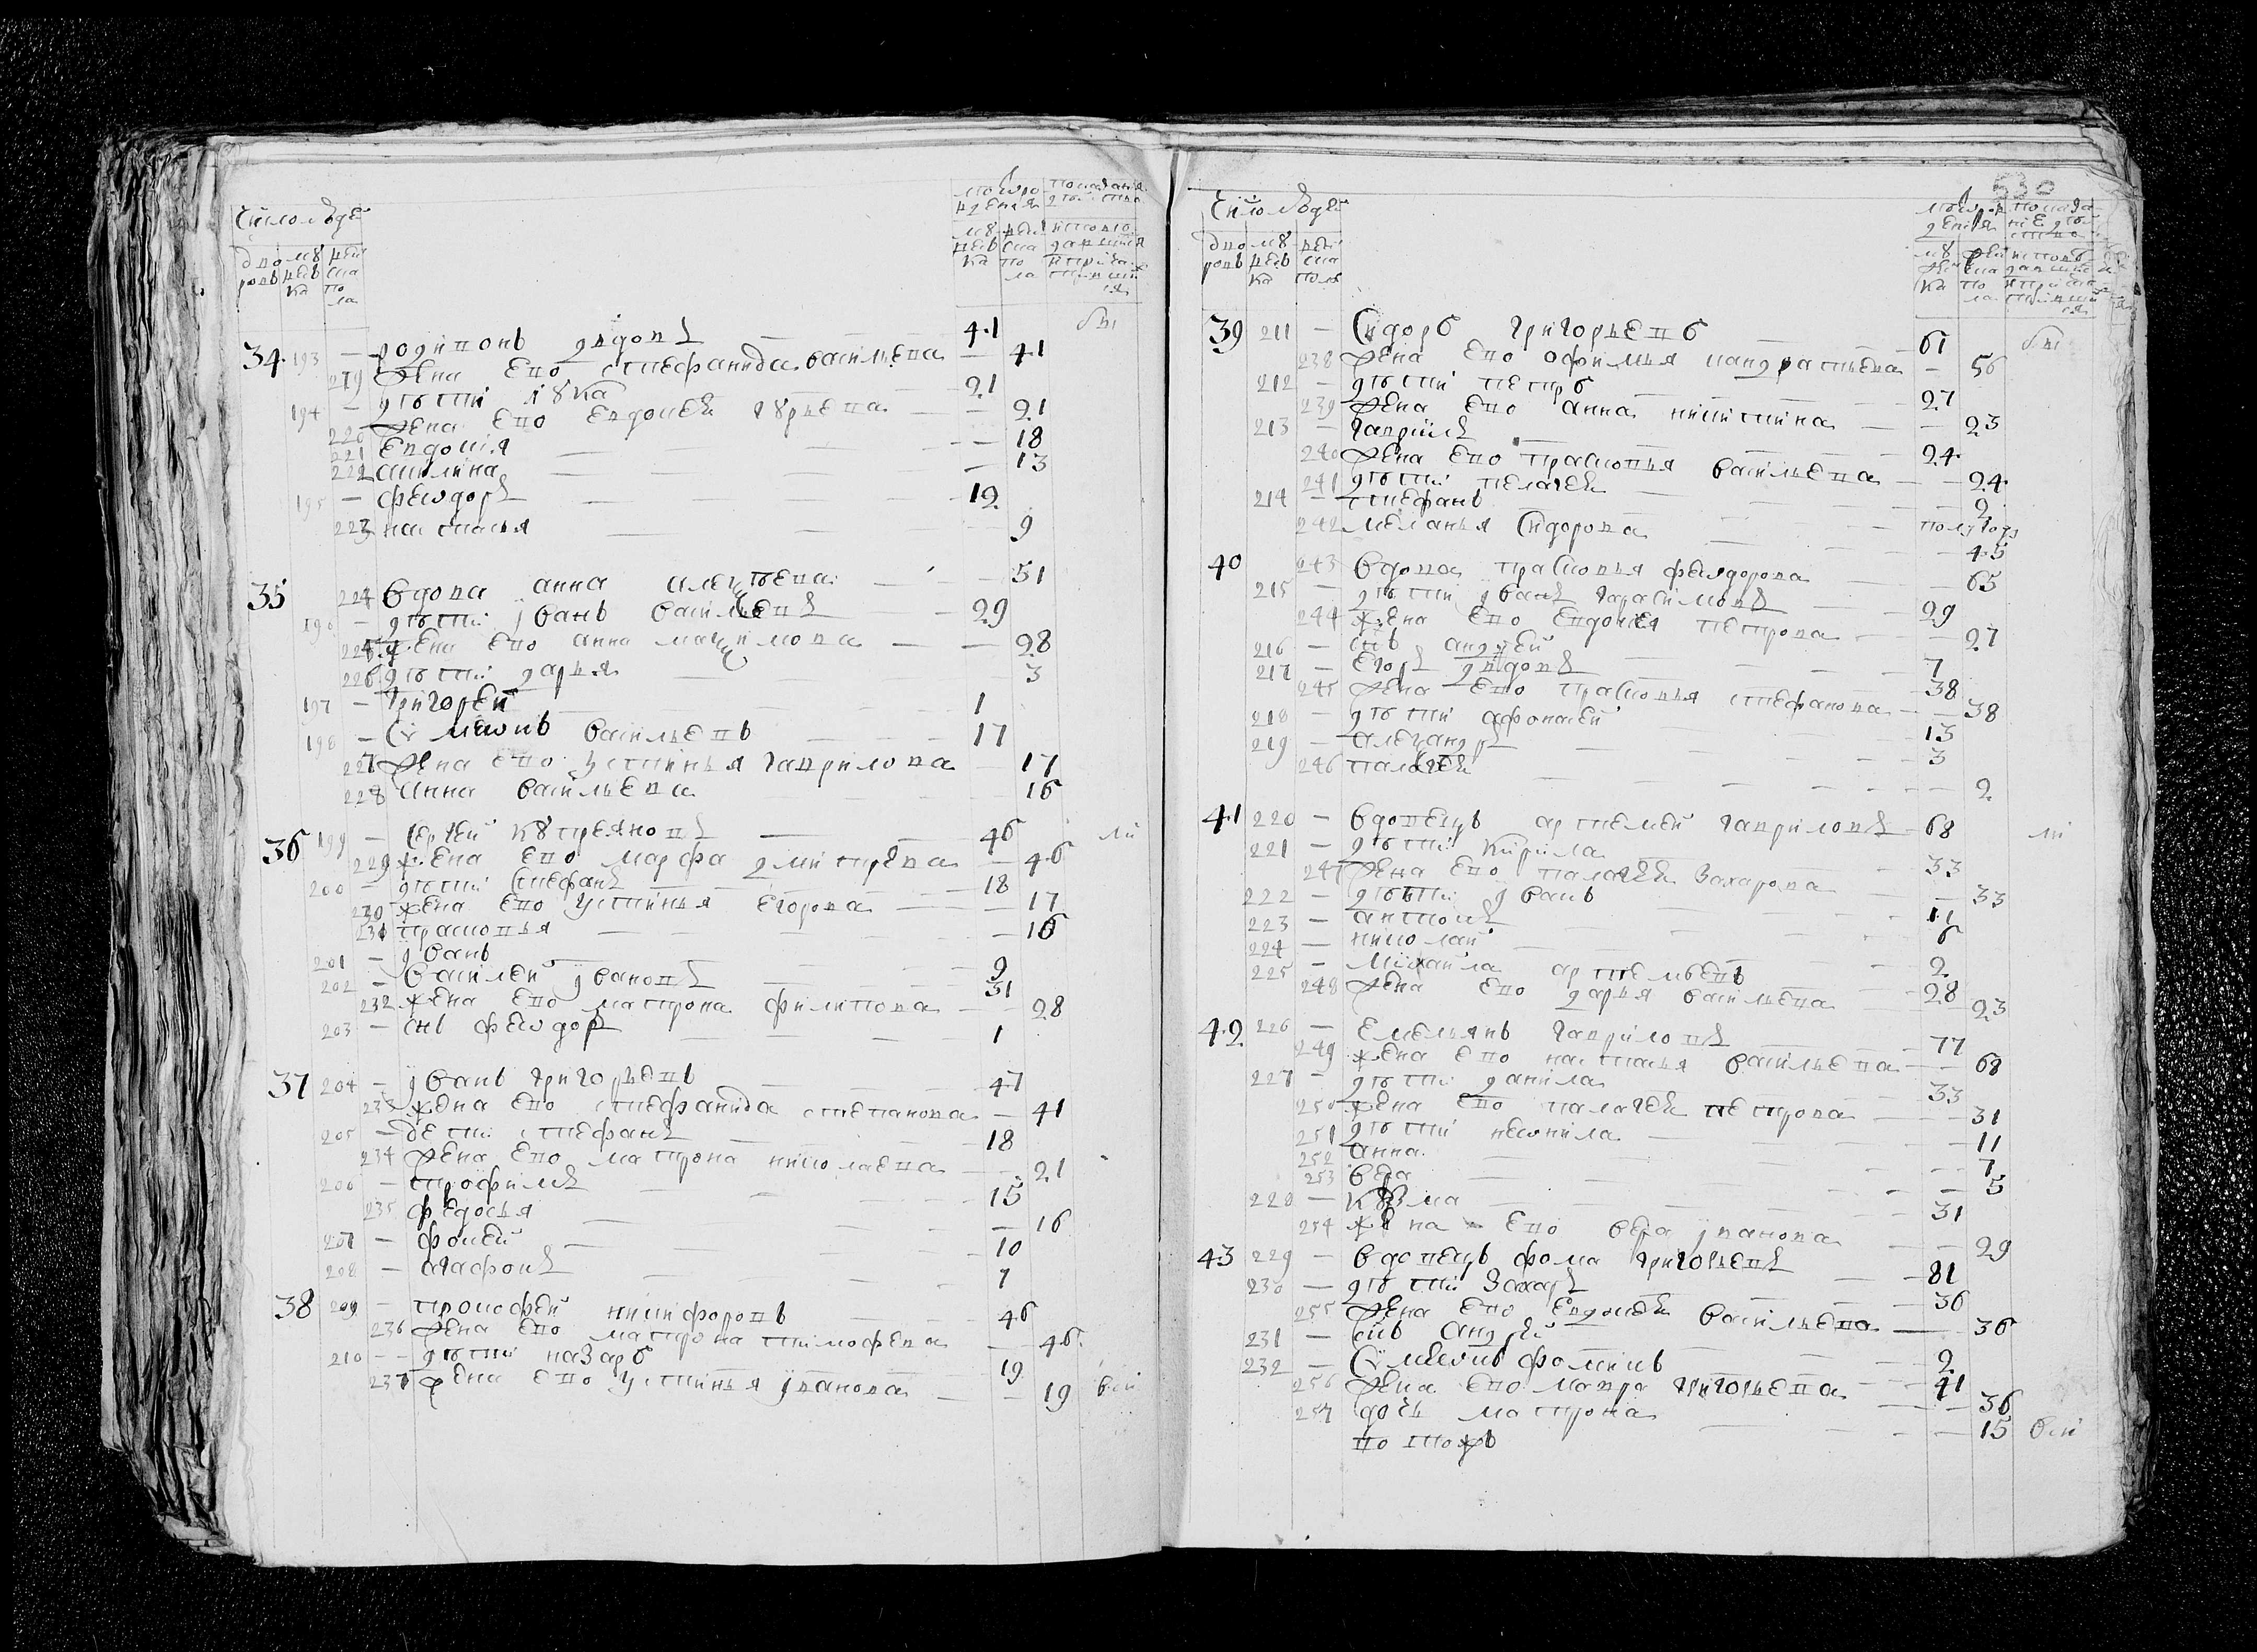 Число людей
дво ровъ
мужеска
женска пола
от рождения
мужеска
женска пола
показание действа
исповедавшияся и причастившияся
34 193 — родивонъ увдовъ — 41 бы
219 жена ево стефанида васильева — 41
194 — дѣти лука 21
220 жена ево евдокѣя гурьева — 21
221 евдокия — 18
222 акилина — 13
195 — феѡдоръ — 12
223 настасья — 9
35 224 вдова анна алеѯѣева — 51
196 — дѣти иванъ васильевъ — 29
225 жена ево анна маѯимова — 28
226 дѣти дарья — 3
197 — григорей — 1
198 — Сѵмеѡнъ васильевъ — 17
227 жена ево устинья гаврилова — 17
228 анна васильева — 16
36 199 — сергей купреяновъ — 46 ли
229 жена ево марфа дмитрева — 46
200 — дѣти стефанъ — 18
230 жена ево устинья егорова — 17
231 прасковья — 16
201 — иванъ — 9
202 — василей ивановъ — 31
232 жена ево матрона филипова — 28
203 — снъ феѡдоръ — 1
37 204 — иванъ григорьевъ — 47
233 жена ево стефанида степанова — 41
205 — дети стефанъ — 18
234 жена ево матрона николаева — 21
206 — трофимъ — 15
235 федосья — 16
207 — фокей — 10
208 — агафонъ — 7
38 209 — прокофей никифоровъ — 46
236 жена ево матрона тимофева — 46
210 — дѣти назаръ — 19
237 жена ево устинья иванова — 19 вси
530
Число людей
дворовъ
мужеска
женска полъ
39 211 — Сидоръ григорьевъ — 61 бы
238 жена ево офимья кандратьева — 56
212 — дѣти петръ — 27
239 жена ево анна никитина — 23
213 — гаврилъ — 24
240 жена ево прасковья васильева — 24
241 дѣти пелагея — 2
214 — стефанъ полутора
242 меланья Сидорова — 45
40 243 вдова прасковья феѡдорова — 65
215 — дѣти иванъ гарасимовъ — 29
244 жена ево евдокѣя петрова — 27
216 — снъ андрей — 7
217 — егоръ увдовъ — 38
245 жена ево прасковья стефанова — 38
218 — дѣти афонасей — 13
219 — алеѯандръ — 3
246 палагея — 2
41 220 — вдовецъ артемей гавриловъ — 68 ли
221 — дѣти кирила — 33
247 жена ево палагея захарова — 33
222 — дѣти иванъ — 11
223 — антонъ — 6
224 — николай — 2
225 — михайла артемьевъ — 28
248 жена ево дарья васильева — 23
42 226 — емельянъ гавриловъ — 77
249 жена ево настасья васильева — 68
227 — дѣти данила — 33
250 жена ево палагея петрова — 31
251 дѣти неѡнила — 11
252 анна — 7
253 вера — 5
228 — кузма — 31
254 жена ево вера иванова — 29
43 229 — вдовецъ фома григорьевъ — 81
230 — дѣти захаръ — 36
255 жена ево евдокѣя васильева — 36
231 — снъ андрей — 2
232 — Сѵмеѡнъ фоминъ — 41
256 жена ево мавра григорьева — 36
257 дочь матрона — 15 вси
во втожъ